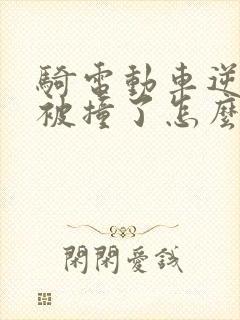 騎電動車逆
被撞了怎麼
閑閑愛錢